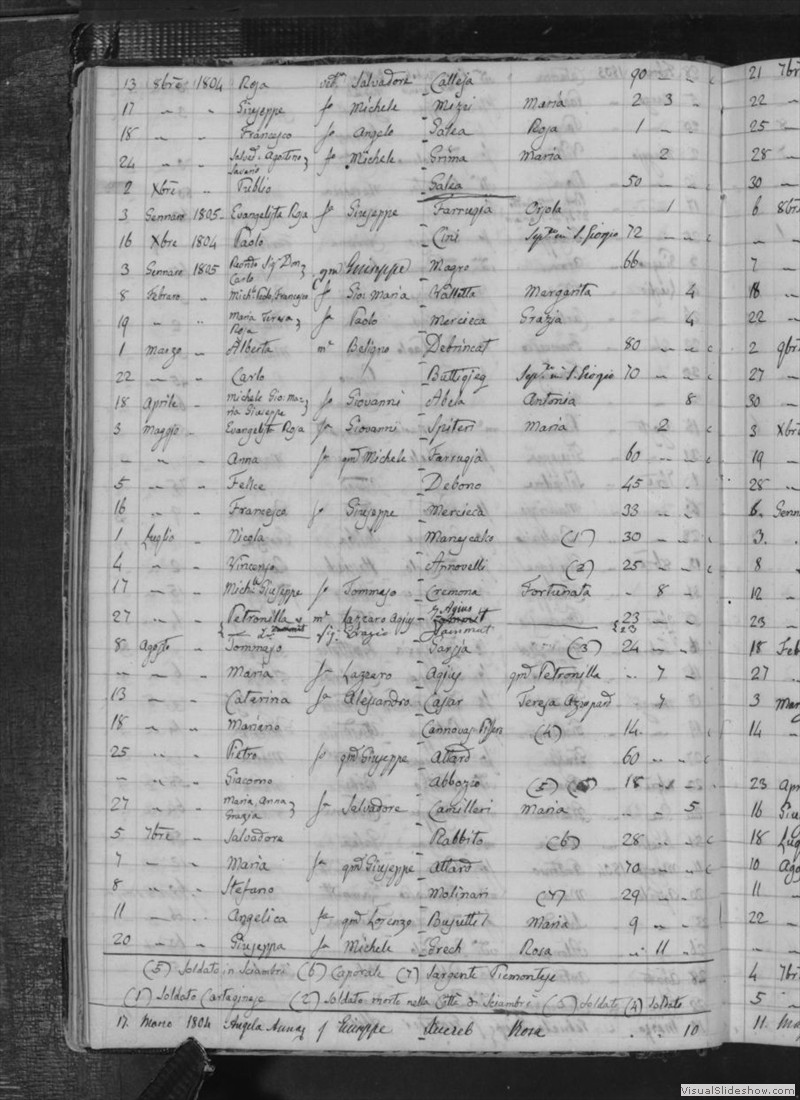 13 8bre 1804 Roja ved.a Salvadore Calleja 90 " " c
17 " " Giuseppe fo Michele Mizzi Maria 2 3 "
18 " " Francesco fo Angelo Galea Roja 1 " "
24 " " Salvad. Agostino Saverio fo Michele Grima Maria 2
2 Xbre " Publio Galea 50 " "
3 Gennaro 1805 Evangelista Roja fa Giuseppe Farrugia Orsola 1
16 Xbre 1804 Paolo Cini Sep.to in S. Giorgio 72 " " c
3 Gennaro 1805 Sig Don Carlo qm Giuseppe Magro 66
8 Febraro " fo Gio: Maria Margarita 4
19 " " Maria Teresa Roja fa Paolo Mercieca Grazja 4
1 Marzo " Alberta m.e Beligno Debrincat 80 " " c
22 " " Carlo Buttigieg Sep.to in S. Giorgio 70 " " c
18 Aprile " Michele Gio: Maria Giuseppe fo Giovanni Abela Antonia 8
3 Maggio " Evangelista Roja fa Giovanni Spiteri Maria 2
" " Anna fa qm Michele Farrugia 60 " " c
5 " " Felice Debono 45 " "
16 " " Francesca fa Giuseppe Mercieca 33 " "
1 Luglio " Nicola Manescalco (1) 30 " " c
4 " " Vincenzo Annovelli (2) 25 " " c
17 " " Giuseppe fo Tommaso Cremona Fortunata " 8 "
27 " " Petronilla m.e Lazzaro Agius 23
Sig. Grazio Sammut 23
8 Agosto " Tommaso (3) 24 " "
" " " Maria fa Lazzaro Agius qm Petronilla " 7 "
13 " " Caterina fa Alessandro Casar Teresa Azzopard " 7
18 " " Mariano (4) 14 " "
25 " " Pietro fo qm Giuseppe Attard 60 " c
" " Giacomo Abbozio (5) 18 " "
27 " " Maria, Anna Grazia fa Salvadore Camilleri Maria " " 5
5 7bre " Salvadore Rabbito (6) 28 " " c
7 " " Maria fa qm Giuseppe Attard 70 " " c
8 " " Stefano Molinari (7) 29 " "
11 " " Angelica fa qm Lorenzo Busuttil Maria 9 " "
20 " " Giuseppa fa Michele Grech Rosa " 11 "
(5) Soldato in Sciambri (6) Caporale (7) Sargente Piemontese
(1) Soldato Cartaginese (2) Soldato morto nella Cotti di Sciambri (3) Soldato (4) Soldato
17 Marzo 1804 Angela Anna f Giuseppe Xuereb Rosa " " 10
21 7br
22 "
25 "
28 "
30 "
6 8br
" 1
7 "
18 "
22 "
2 9br
27 "
30 "
3 Xbr
19 "
28 "
6 Genn
3 "
8 "
12 "
23 "
18 Feb
27 "
3 Mar
14 "
23 Apr
16 Giu
18 Lug
10 Ago
11 "
22 "
4 7br
5 "
11 Ma
VisualSlideshow.com